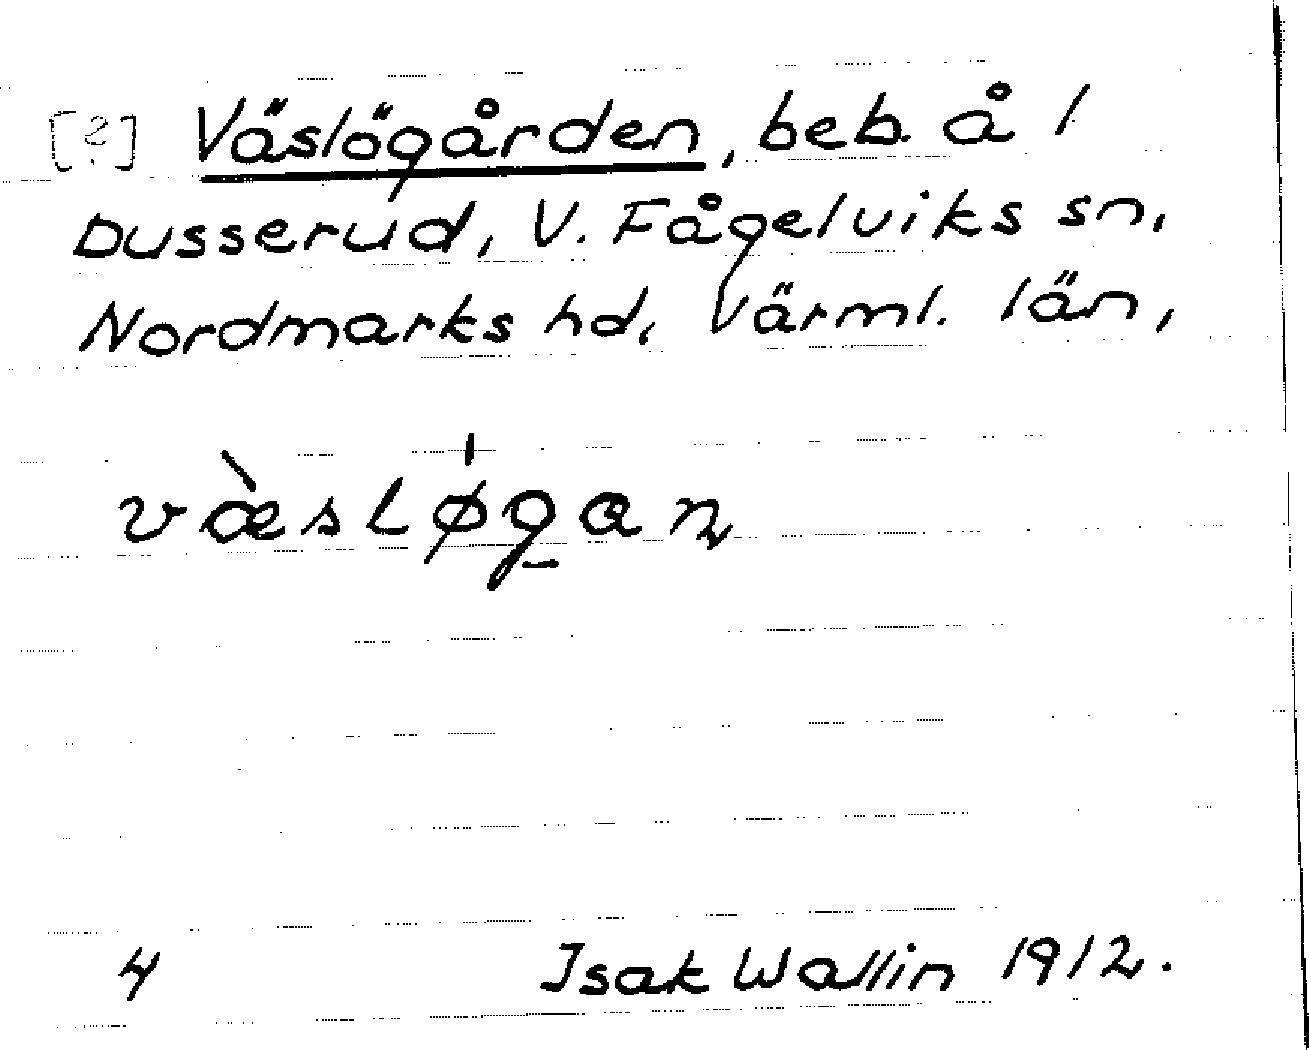 [?] Väslögården, beb. å 1
Dusserud, V. Fågelviks sn,
Nordmarks hd, Värml. län,
væ̀slø̍gan
4 Isak Wallin 1912.